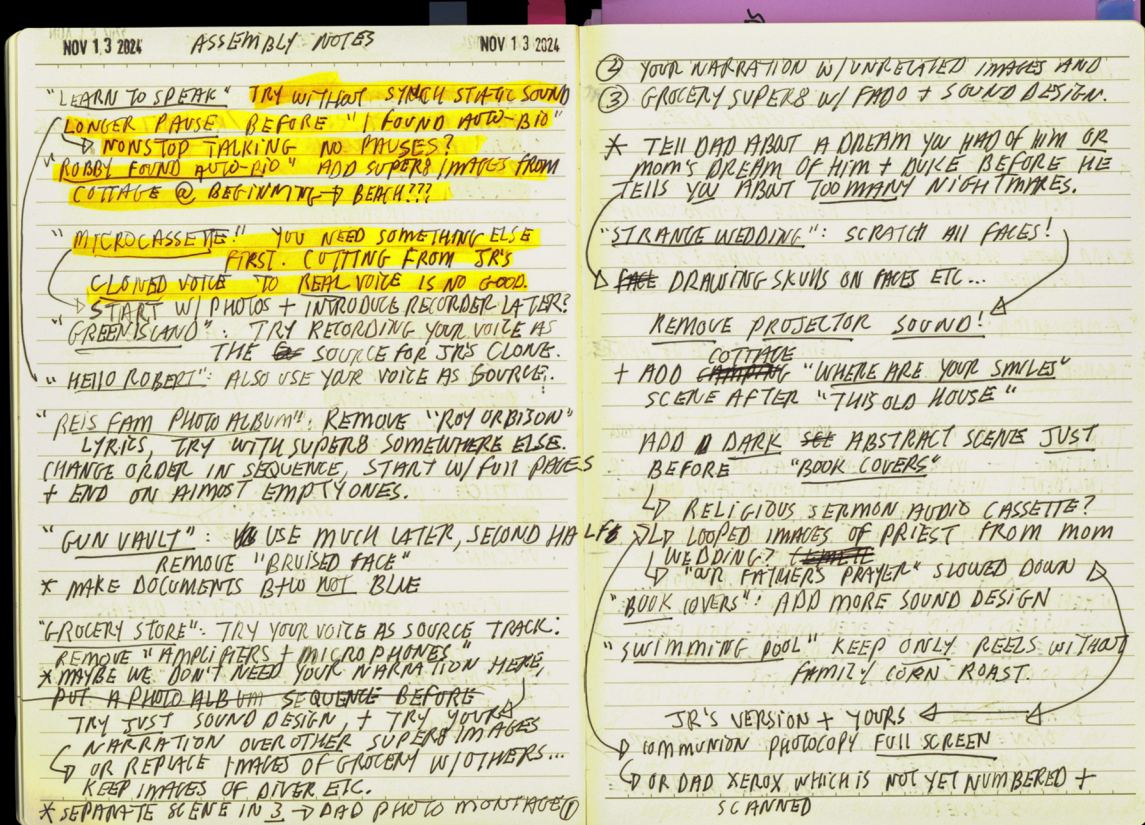 NOV 13 2024 ASSEMBLY NOTES NOV 13 2024
"LEARN TO SPEAK" TRY WITHOUT SYNCH STATIC SOUND
LONGER PAUSE BEFORE "I FOUND AUTO-BIO"
NONSTOP TALKING NO PAUSES?
"ROBBY FOUND AUTO-BIO" ADD SUPER8 IMAGES FROM
COTTAGE @ BEGINNING → BEACH???
"MICROCASSETTE!" YOU NEED SOMETHING ELSE
FIRST. CUTTING FROM JR'S
CLONED VOICE TO REAL VOICE IS NO GOOD.
START W/ PHOTOS + INTRODUCE RECORDER LATER?
"GREEN ISLAND": TRY RECORDING YOUR VOICE AS
THE SOURCE FOR JR'S CLONE.
"HELLO ROBERT": ALSO USE YOUR VOICE AS SOURCE.
"REIS FAM PHOTO ALBUM": REMOVE "ROY ORBISON"
LYRICS, TRY WITH SUPER8 SOMEWHERE ELSE.
CHANGE ORDER IN SEQUENCE, START W/ FULL PAGES
+ END ON ALMOST EMPTY ONES.
"GUN VAULT": USE MUCH LATER, SECOND HALF
REMOVE "BRUISED FACE"
* MAKE DOCUMENTS B+W NOT BLUE
"GROCERY STORE": TRY YOUR VOICE AS SOURCE TRACK.
REMOVE "AMPLIFIERS + MICROPHONES"
* MAYBE WE DON'T NEED YOUR NARRATION HERE,
PUT A PHOTO ALBUM SEQUENCE BEFORE
TRY JUST SOUND DESIGN, + TRY YOUR
NARRATION OVER OTHER SUPER8 IMAGES
OR REPLACE IMAGES OF GROCERY W/ OTHERS...
KEEP IMAGES OF DIVER ETC.
* SEPARATE SCENE IN 3 → DAD PHOTO MONTAGE ①
② YOUR NARRATION W/ UNRELATED IMAGES AND
③ GROCERY SUPER8 W/ FADO + SOUND DESIGN.
* TELL DAD ABOUT A DREAM YOU HAD OF HIM OR
MOM'S DREAM OF HIM + DUKE BEFORE HE
TELLS YOU ABOUT TOO MANY NIGHTMARES.
"STRANGE WEDDING": SCRATCH ALL FACES!
FACE DRAWING SKULLS ON FACES ETC...
REMOVE PROJECTOR SOUND!
COTTAGE
+ ADD CAMPING "WHERE ARE YOUR SMILES"
SCENE AFTER "THIS OLD HOUSE"
ADD A DARK ABSTRACT SCENE JUST
BEFORE "BOOK COVERS"
RELIGIOUS SERMON AUDIO CASSETTE?
LOOPED IMAGES OF PRIEST FROM MOM
WEDDING?
"OUR FATHERS PRAYER" SLOWED DOWN
"BOOK COVERS": ADD MORE SOUND DESIGN
"SWIMMING POOL" KEEP ONLY REELS WITHOUT
FAMILY CORN ROAST.
JR'S VERSION + YOURS
COMMUNION PHOTOCOPY FULL SCREEN
OR DAD XEROX WHICH IS NOT YET NUMBERED +
SCANNED